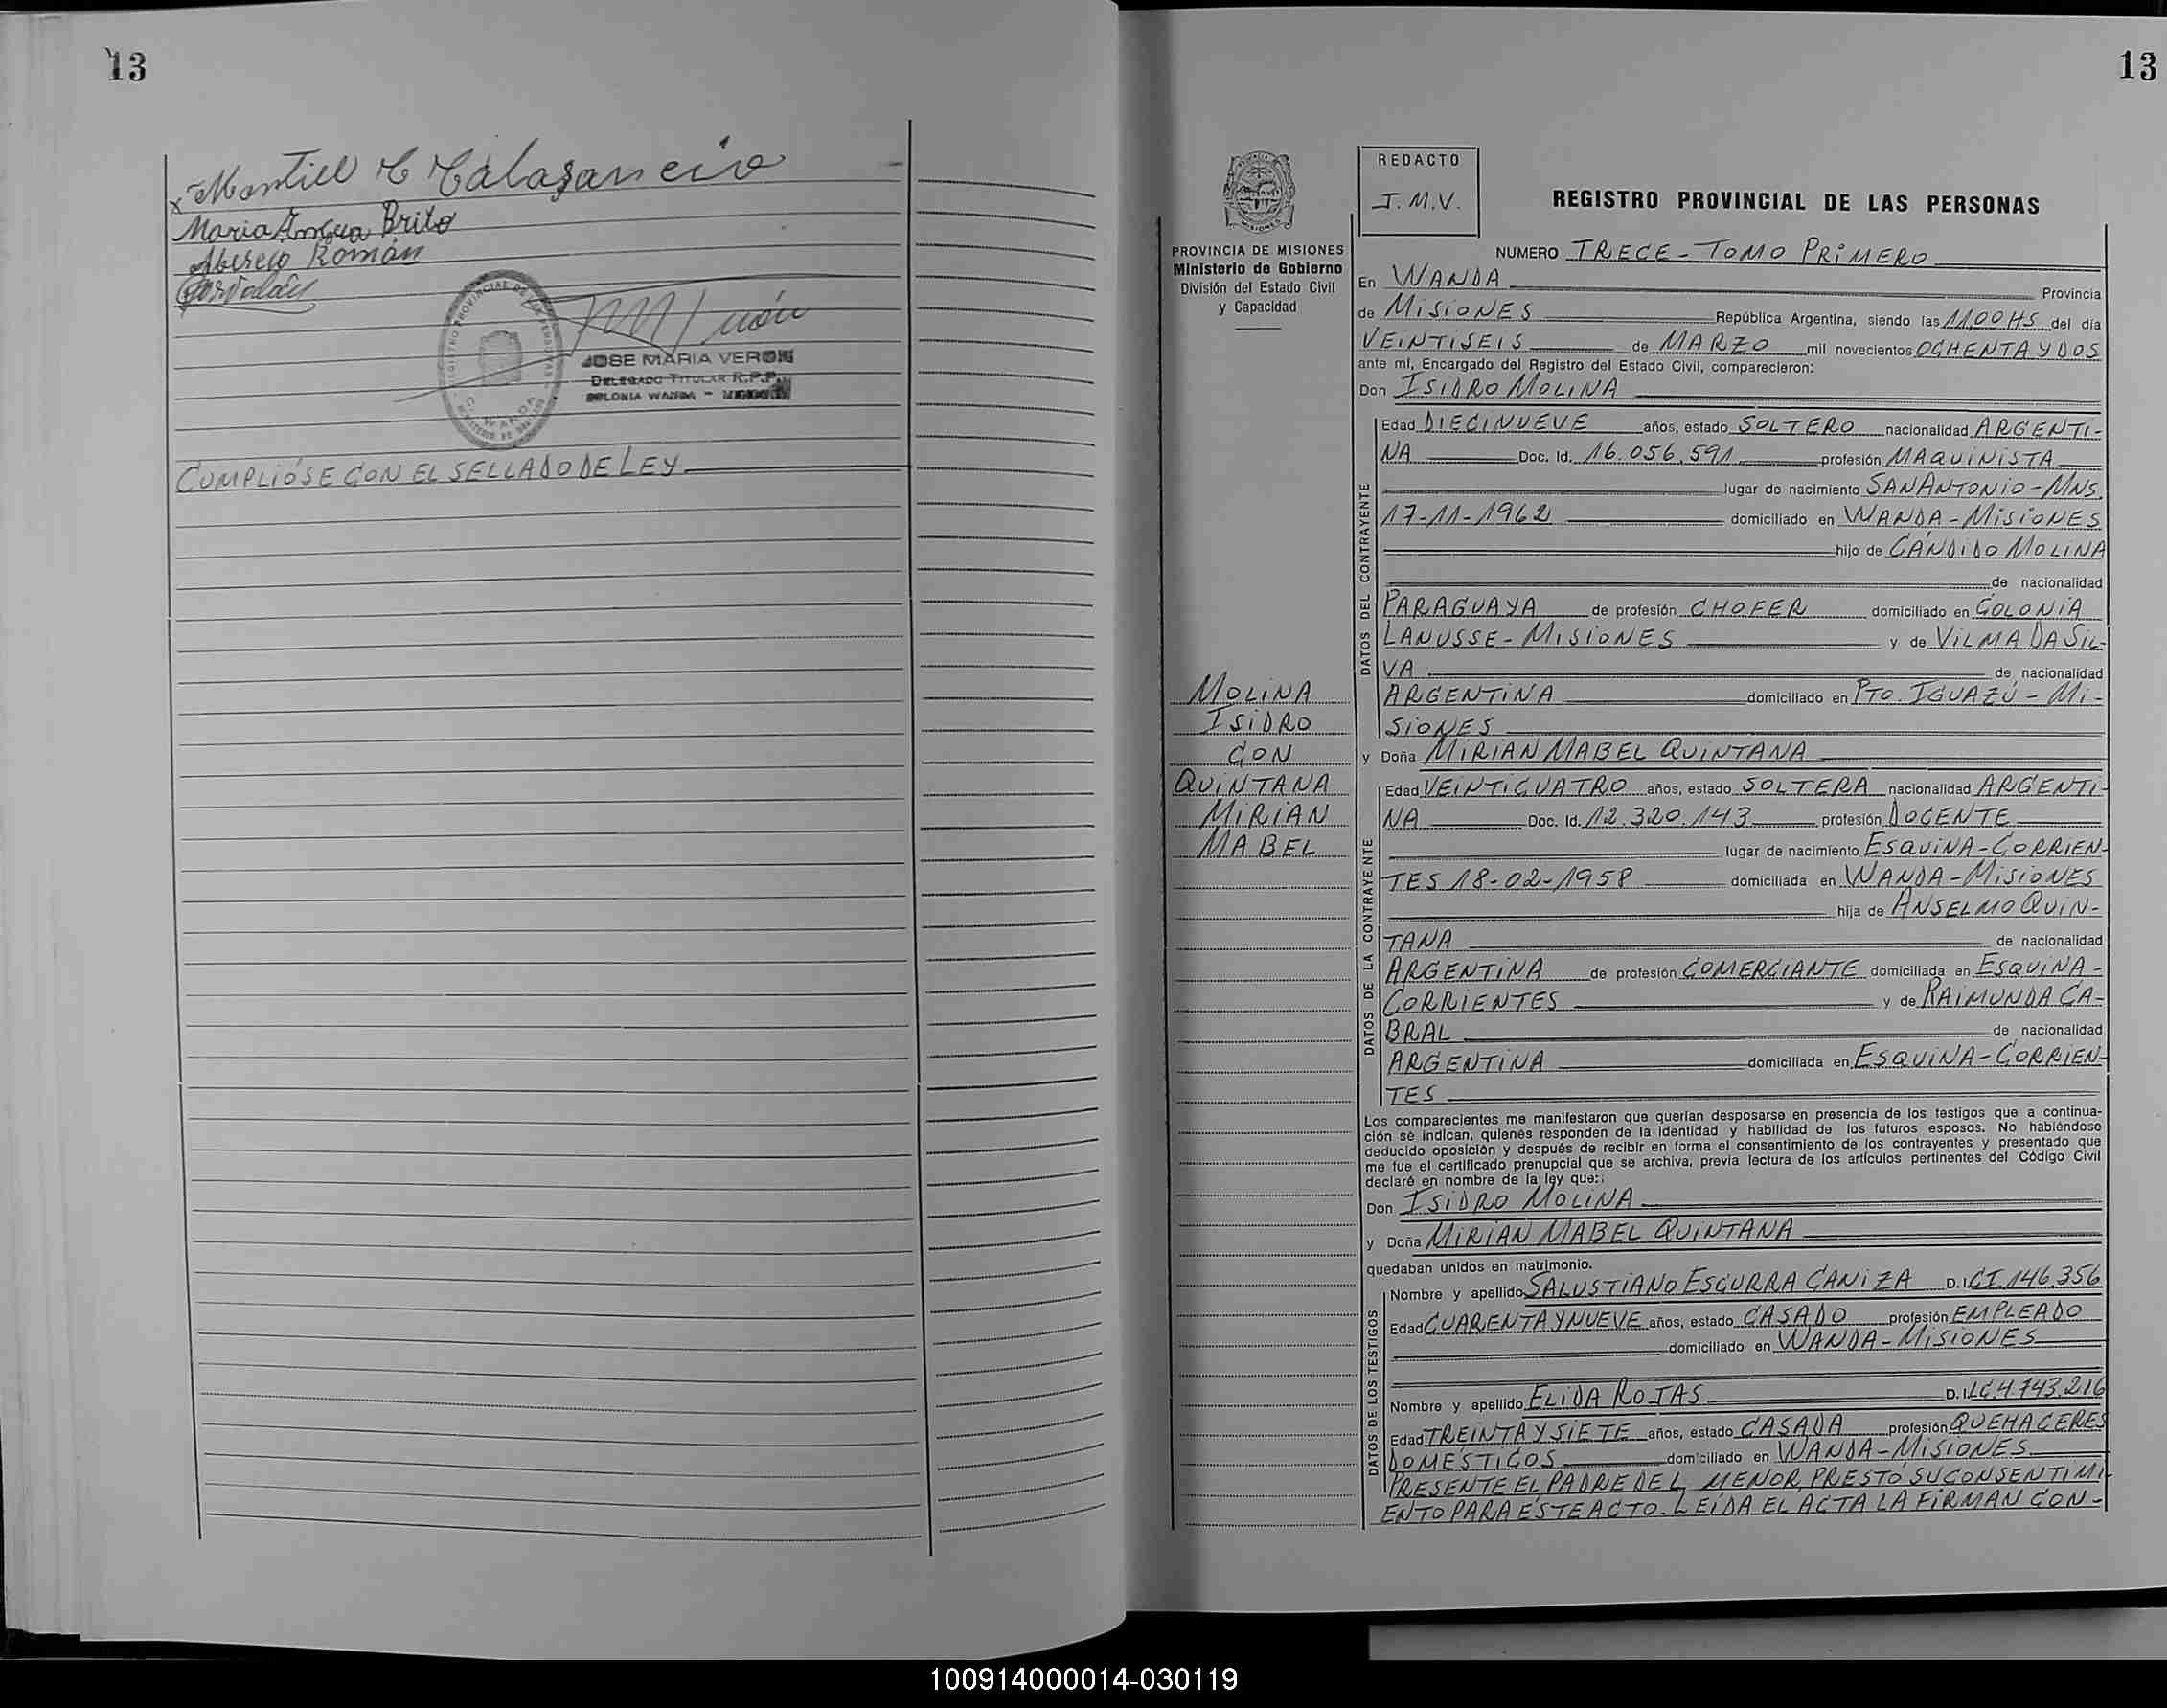 13
Montiel C Calasancio
Maria Brito
Román
REGISTRO PROVINCIAL DE LAS PERSONAS
JOSE MARIA VERON
DELEGADO TITULAR R.P.P.
COLONIA WANDA -
CUMPLIÓSE CON EL SELLADO DE LEY
13
REDACTO
J.M.V.
REGISTRO PROVINCIAL DE LAS PERSONAS
PROVINCIA DE MISIONES
Ministerio de Gobierno
División del Estado Civil
y Capacidad
MOLINA
ISIDRO
CON
QUINTANA
MIRIAN
MABEL
NUMERO TRECE - TOMO PRIMERO
En WANDA Provincia
de MISIONES República Argentina, siendo las 11,00 HS del día
VEINTISEIS de MARZO mil novecientos OCHENTA Y DOS
ante mí, Encargado del Registro del Estado Civil, comparecieron:
Don ISIDRO MOLINA
DATOS DEL CONTRAYENTE
Edad DIECINUEVE años, estado SOLTERO nacionalidad ARGENTI-
NA Doc. Id. 16.056.591 profesión MAQUINISTA
lugar de nacimiento SAN ANTONIO - MNS.
17-11-1962 domiciliado en WANDA - MISIONES
hijo de CÁNDIDO MOLINA
de nacionalidad
PARAGUAYA de profesión CHOFER domiciliado en COLONIA
LANUSSE - MISIONES y de VILMA DA SIL-
VA de nacionalidad
ARGENTINA domiciliado en PTO. IGUAZÚ - MI-
SIONES
y Doña MIRIAN MABEL QUINTANA
DATOS DE LA CONTRAYENTE
Edad VEINTICUATRO años, estado SOLTERA nacionalidad ARGENTI-
NA Doc. Id. 12.320.143 profesión DOCENTE
lugar de nacimiento ESQUINA - CORRIEN-
TES 18-02-1958 domiciliada en WANDA - MISIONES
hija de ANSELMO QUIN-
TANA de nacionalidad
ARGENTINA de profesión COMERCIANTE domiciliada en ESQUINA -
CORRIENTES y de RAIMUNDA CA-
BRAL de nacionalidad
ARGENTINA domiciliada en ESQUINA - CORRIEN-
TES
Los comparecientes me manifestaron que querían desposarse en presencia de los testigos que a continua-
ción se indican, quienes responden de la identidad y habilidad de los futuros esposos. No habiéndose
deducido oposición y después de recibir en forma el consentimiento de los contrayentes y presentado que
me fue el certificado prenupcial que se archiva, previa lectura de los artículos pertinentes del Código Civil
declaré en nombre de la ley que:
Don ISIDRO MOLINA
y Doña MIRIAN MABEL QUINTANA
quedaban unidos en matrimonio.
DATOS DE LOS TESTIGOS
Nombre y apellido SALUSTIANO ESCURRA CANIZA D.I. CI. 146.356
Edad CUARENTA Y NUEVE años, estado CASADO profesión EMPLEADO
domiciliado en WANDA - MISIONES
Nombre y apellido ELIDA ROJAS D.I. LC. 4.743.216
Edad TREINTA Y SIETE años, estado CASADA profesión QUEHACERES
DOMÉSTICOS domiciliado en WANDA - MISIONES
PRESENTE EL PADRE DEL MENOR, PRESTÓ SU CONSENTIMI-
ENTO PARA ÉSTE ACTO. LEÍDA EL ACTA LA FIRMAN CON-
100914000014-030119